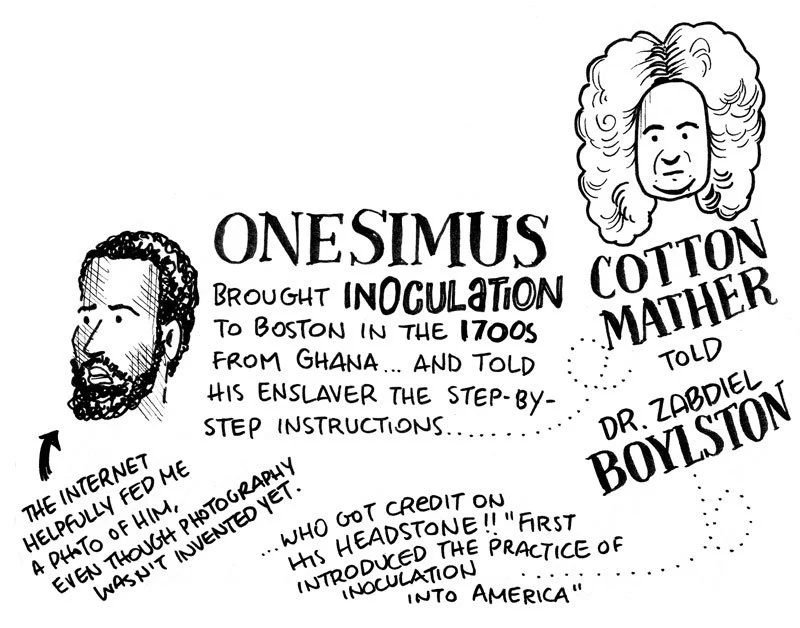 ONESIMUS
BROUGHT INOCULATION
TO BOSTON IN THE 1700s
FROM GHANA... AND TOLD
HIS ENSLAVER THE STEP-BY-
STEP INSTRUCTIONS......
COTTON
MATHER
TOLD
DR. ZABDIEL
BOYLSTON
...WHO GOT CREDIT ON
HIS HEADSTONE!! "FIRST
INTRODUCED THE PRACTICE OF
INOCULATION
INTO AMERICA"
THE INTERNET
HELPFULLY FED ME
A PHOTO OF HIM,
EVEN THOUGH PHOTOGRAPHY
WASN'T INVENTED YET.